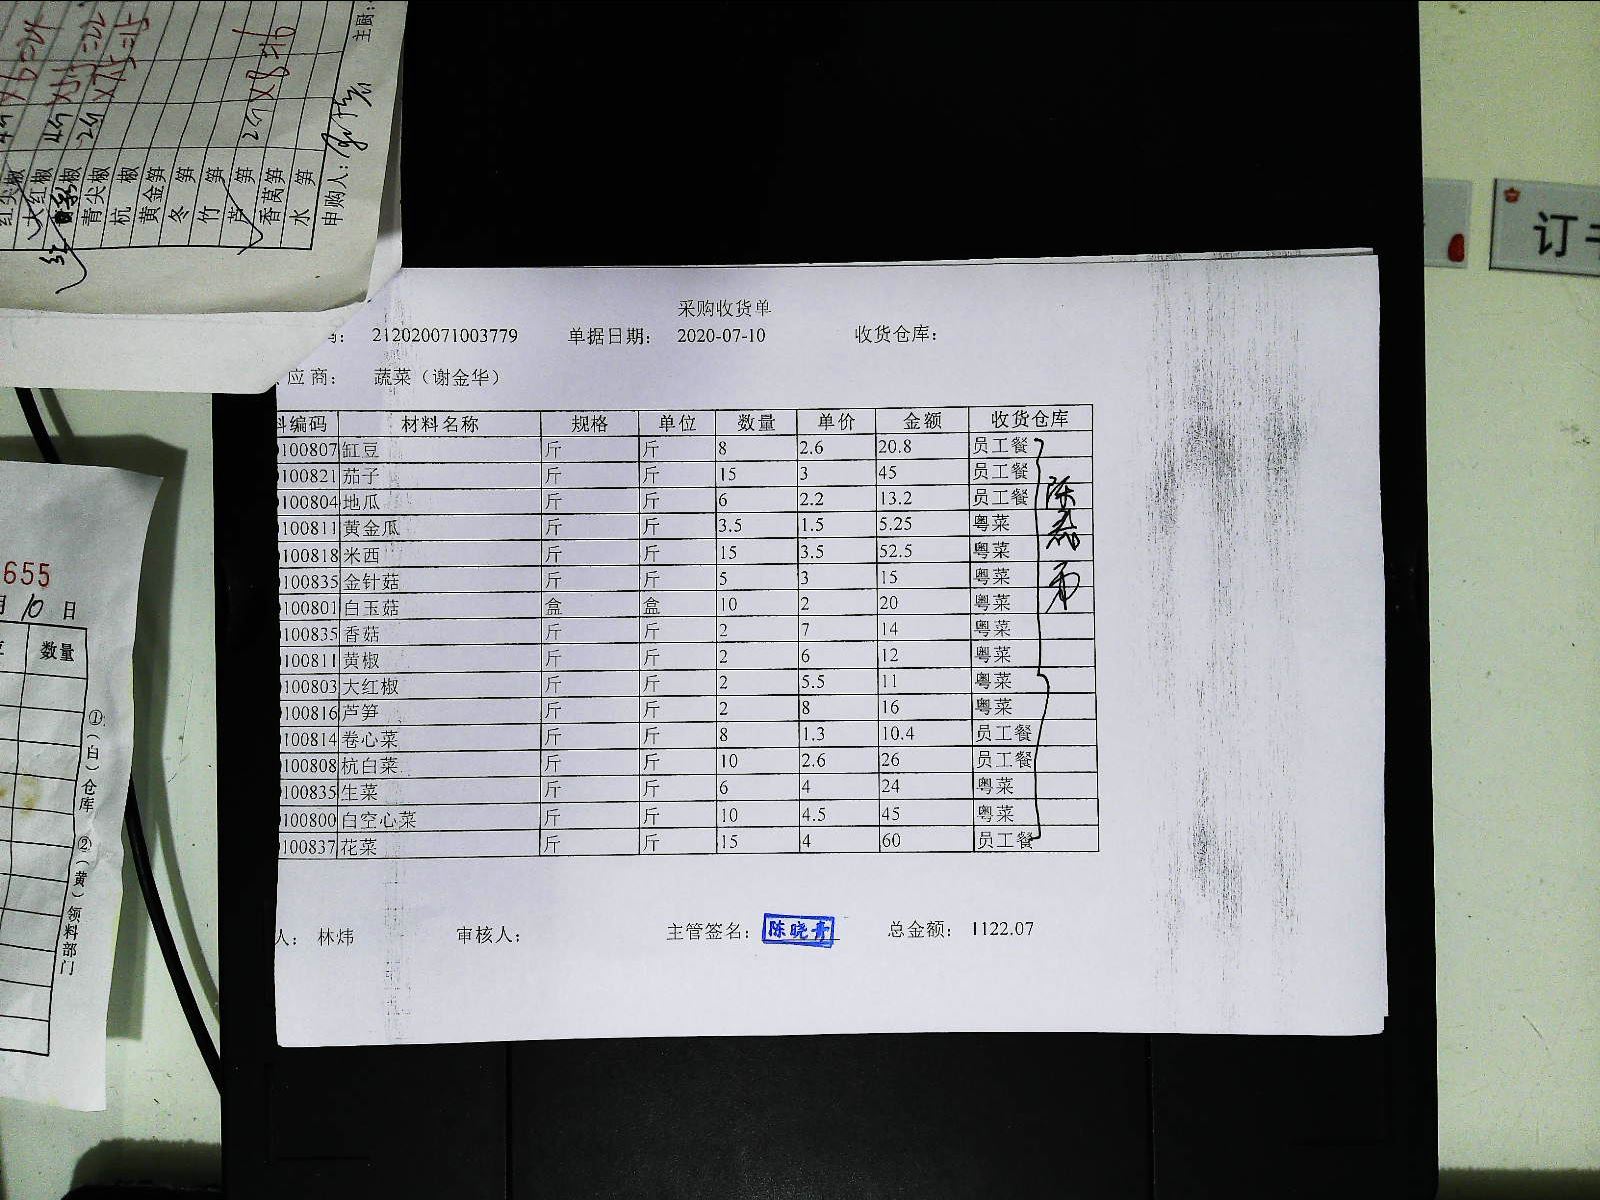 采购收货单
212020071003779 单据日期： 2020-07-10 收货仓库：
应商： 蔬菜（谢金华）
编码 材料名称 规格 单位 数量 单价 金额 收货仓库
100807 缸豆 斤 斤 8 2.6 20.8 员工餐
100821 茄子 斤 斤 15 3 45 员工餐
100804 地瓜 斤 斤 6 2.2 13.2 员工餐
100811 黄金瓜 斤 斤 3.5 1.5 5.25 粤菜
100818 米西 斤 斤 15 3.5 52.5 粤菜
100835 金针菇 斤 斤 5 3 15 粤菜
100801 白玉菇 盒 盒 10 2 20 粤菜
100835 香菇 斤 斤 2 7 14 粤菜
100811 黄椒 斤 斤 2 6 12 粤菜
100803 大红椒 斤 斤 2 5.5 11 粤菜
100816 芦笋 斤 斤 2 8 16 粤菜
100814 卷心菜 斤 斤 8 1.3 10.4 员工餐
100808 杭白菜 斤 斤 10 2.6 26 员工餐
100835 生菜 斤 斤 6 4 24 粤菜
100800 白空心菜 斤 斤 10 4.5 45 粤菜
100837 花菜 斤 斤 15 4 60 员工餐
人： 林炜 审核人： 主管签名： 陈晓青 总金额： 1122.07
红尖椒
大红椒
红 椒
青尖椒 2斤×7.5=15
杭 椒
黄金笋
冬 笋
竹 笋
芦 笋 2斤×8=16
香莴笋
水 笋
申购人：
主厨：
655
月 10 日
数量
①（白）仓库 ②（黄）领料部门
订